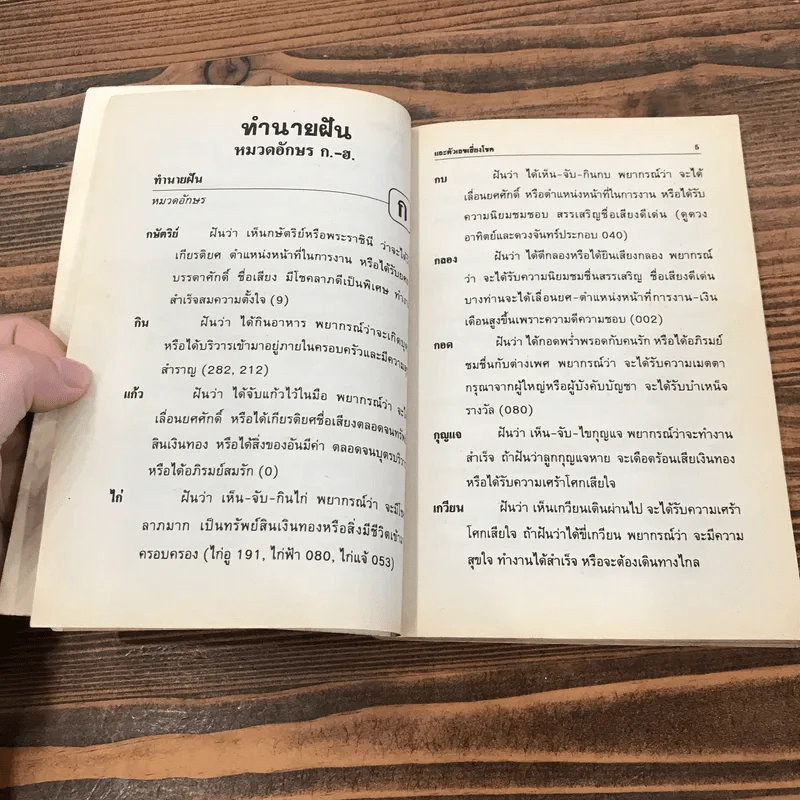 ทำนายฝัน
หมวดอักษร ก.-ฮ.
ทำนายฝัน
หมวดอักษร
ก
กษัตริย์ ฝันว่า เห็นกษัตริย์หรือพระราชินี ว่าจะได้
เกียรติยศ ตำแหน่งหน้าที่ในการงาน หรือได้รับ
บรรดาศักดิ์ ชื่อเสียง มีโชคลาภดีเป็นพิเศษ
สำเร็จสมความตั้งใจ (9)
กิน ฝันว่า ได้กินอาหาร พยากรณ์ว่าจะเกิด
หรือได้บริวารเข้ามาอยู่ภายในครอบครัวและมีความ
สำราญ (282, 212)
แก้ว ฝันว่า ได้จับแก้วไว้ในมือ พยากรณ์ว่า
เลื่อนยศศักดิ์ หรือได้เกียรติยศชื่อเสียงตลอดจน
สินเงินทอง หรือได้สิ่งของอันมีค่า ตลอดจนบุตร
หรือได้อภิรมย์สมรัก (0)
ไก่ ฝันว่า เห็น-จับ-กินไก่ พยากรณ์ว่า จะมี
ลาภมาก เป็นทรัพย์สินเงินทองหรือสิ่งมีชีวิต
ครอบครอง (ไก่อู 191, ไก่ฟ้า 080, ไก่แจ้ 053)
และตัวเลขเสี่ยงโชค 5
กบ ฝันว่า ได้เห็น-จับ-กินกบ พยากรณ์ว่า จะได้
เลื่อนยศศักดิ์ หรือตำแหน่งหน้าที่ในการงาน หรือได้รับ
ความนิยมชมชอบ สรรเสริญชื่อเสียงดีเด่น (คูดวง
อาทิตย์และดวงจันทร์ประกอบ 040)
กลอง ฝันว่า ได้ตีกลองหรือได้ยินเสียงกลอง พยากรณ์
ว่า จะได้รับความนิยมชมชื่นสรรเสริญ ชื่อเสียงดีเด่น
บางท่านจะได้เลื่อนยศ-ตำแหน่งหน้าที่การงาน-เงิน
เดือนสูงขึ้นเพราะความดีความชอบ (002)
กอด ฝันว่า ได้กอดพร่ำพรอดกับคนรัก หรือได้อภิรมย์
ชมชื่นกับต่างเพศ พยากรณ์ว่า จะได้รับความเมตตา
กรุณาจากผู้ใหญ่หรือผู้บังคับบัญชา จะได้รับบำเหน็จ
รางวัล (080)
กุญแจ ฝันว่า เห็น-จับ-ไขกุญแจ พยากรณ์ว่าจะทำงาน
สำเร็จ ถ้าฝันว่าลูกกุญแจหาย จะเดือดร้อนเสียเงินทอง
หรือได้รับความเศร้าโศกเสียใจ
เกวียน ฝันว่า เห็นเกวียนเดินผ่านไป จะได้รับความเศร้า
โศกเสียใจ ถ้าฝันว่าได้ขี่เกวียน พยากรณ์ว่า จะมีความ
สุขใจ ทำงานได้สำเร็จ หรือจะต้องเดินทางไกล